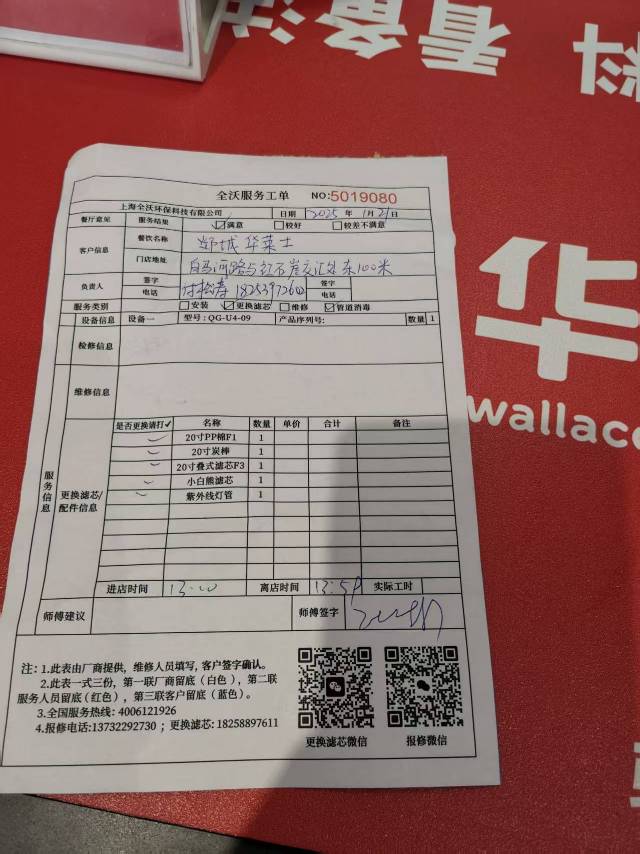 料
看备注
华
wallace
全沃服务工单 NO:5019080
上海全沃环保科技有限公司 日期 2025 年 1月21日
餐厅意见 服务结果 ☑满意 □较好 □较差不满意
客户信息 餐饮名称 郯城华莱士
门店地址 白马河路与红石崖交汇处东100米
负责人 签字 签字
电话 电话
服务类别 □安装 ☑更换滤芯 □维修 ☑管道消毒
设备信息 设备一 型号:QG-U4-09 产品序列号: 数量 1
检修信息
维修信息
服务信息
更换滤芯/配件信息
是否更换请打✓ 名称 数量 单价 合计 备注
20寸PP棉F1 1
20寸炭棒 1
20寸叠式滤芯F3 1
小白熊滤芯 1
紫外线灯管 1
进店时间 13:00 离店时间 实际工时
师傅建议 师傅签字
注:1.此表由厂商提供,维修人员填写,客户签字确认。
2.此表一式三份,第一联厂商留底(白色),第二联
服务人员留底(红色),第三联客户留底(蓝色)。
3.全国服务热线: 4006121926
4.报修电话:13732292730 ; 更换滤芯: 18258897611
更换滤芯微信 报修微信